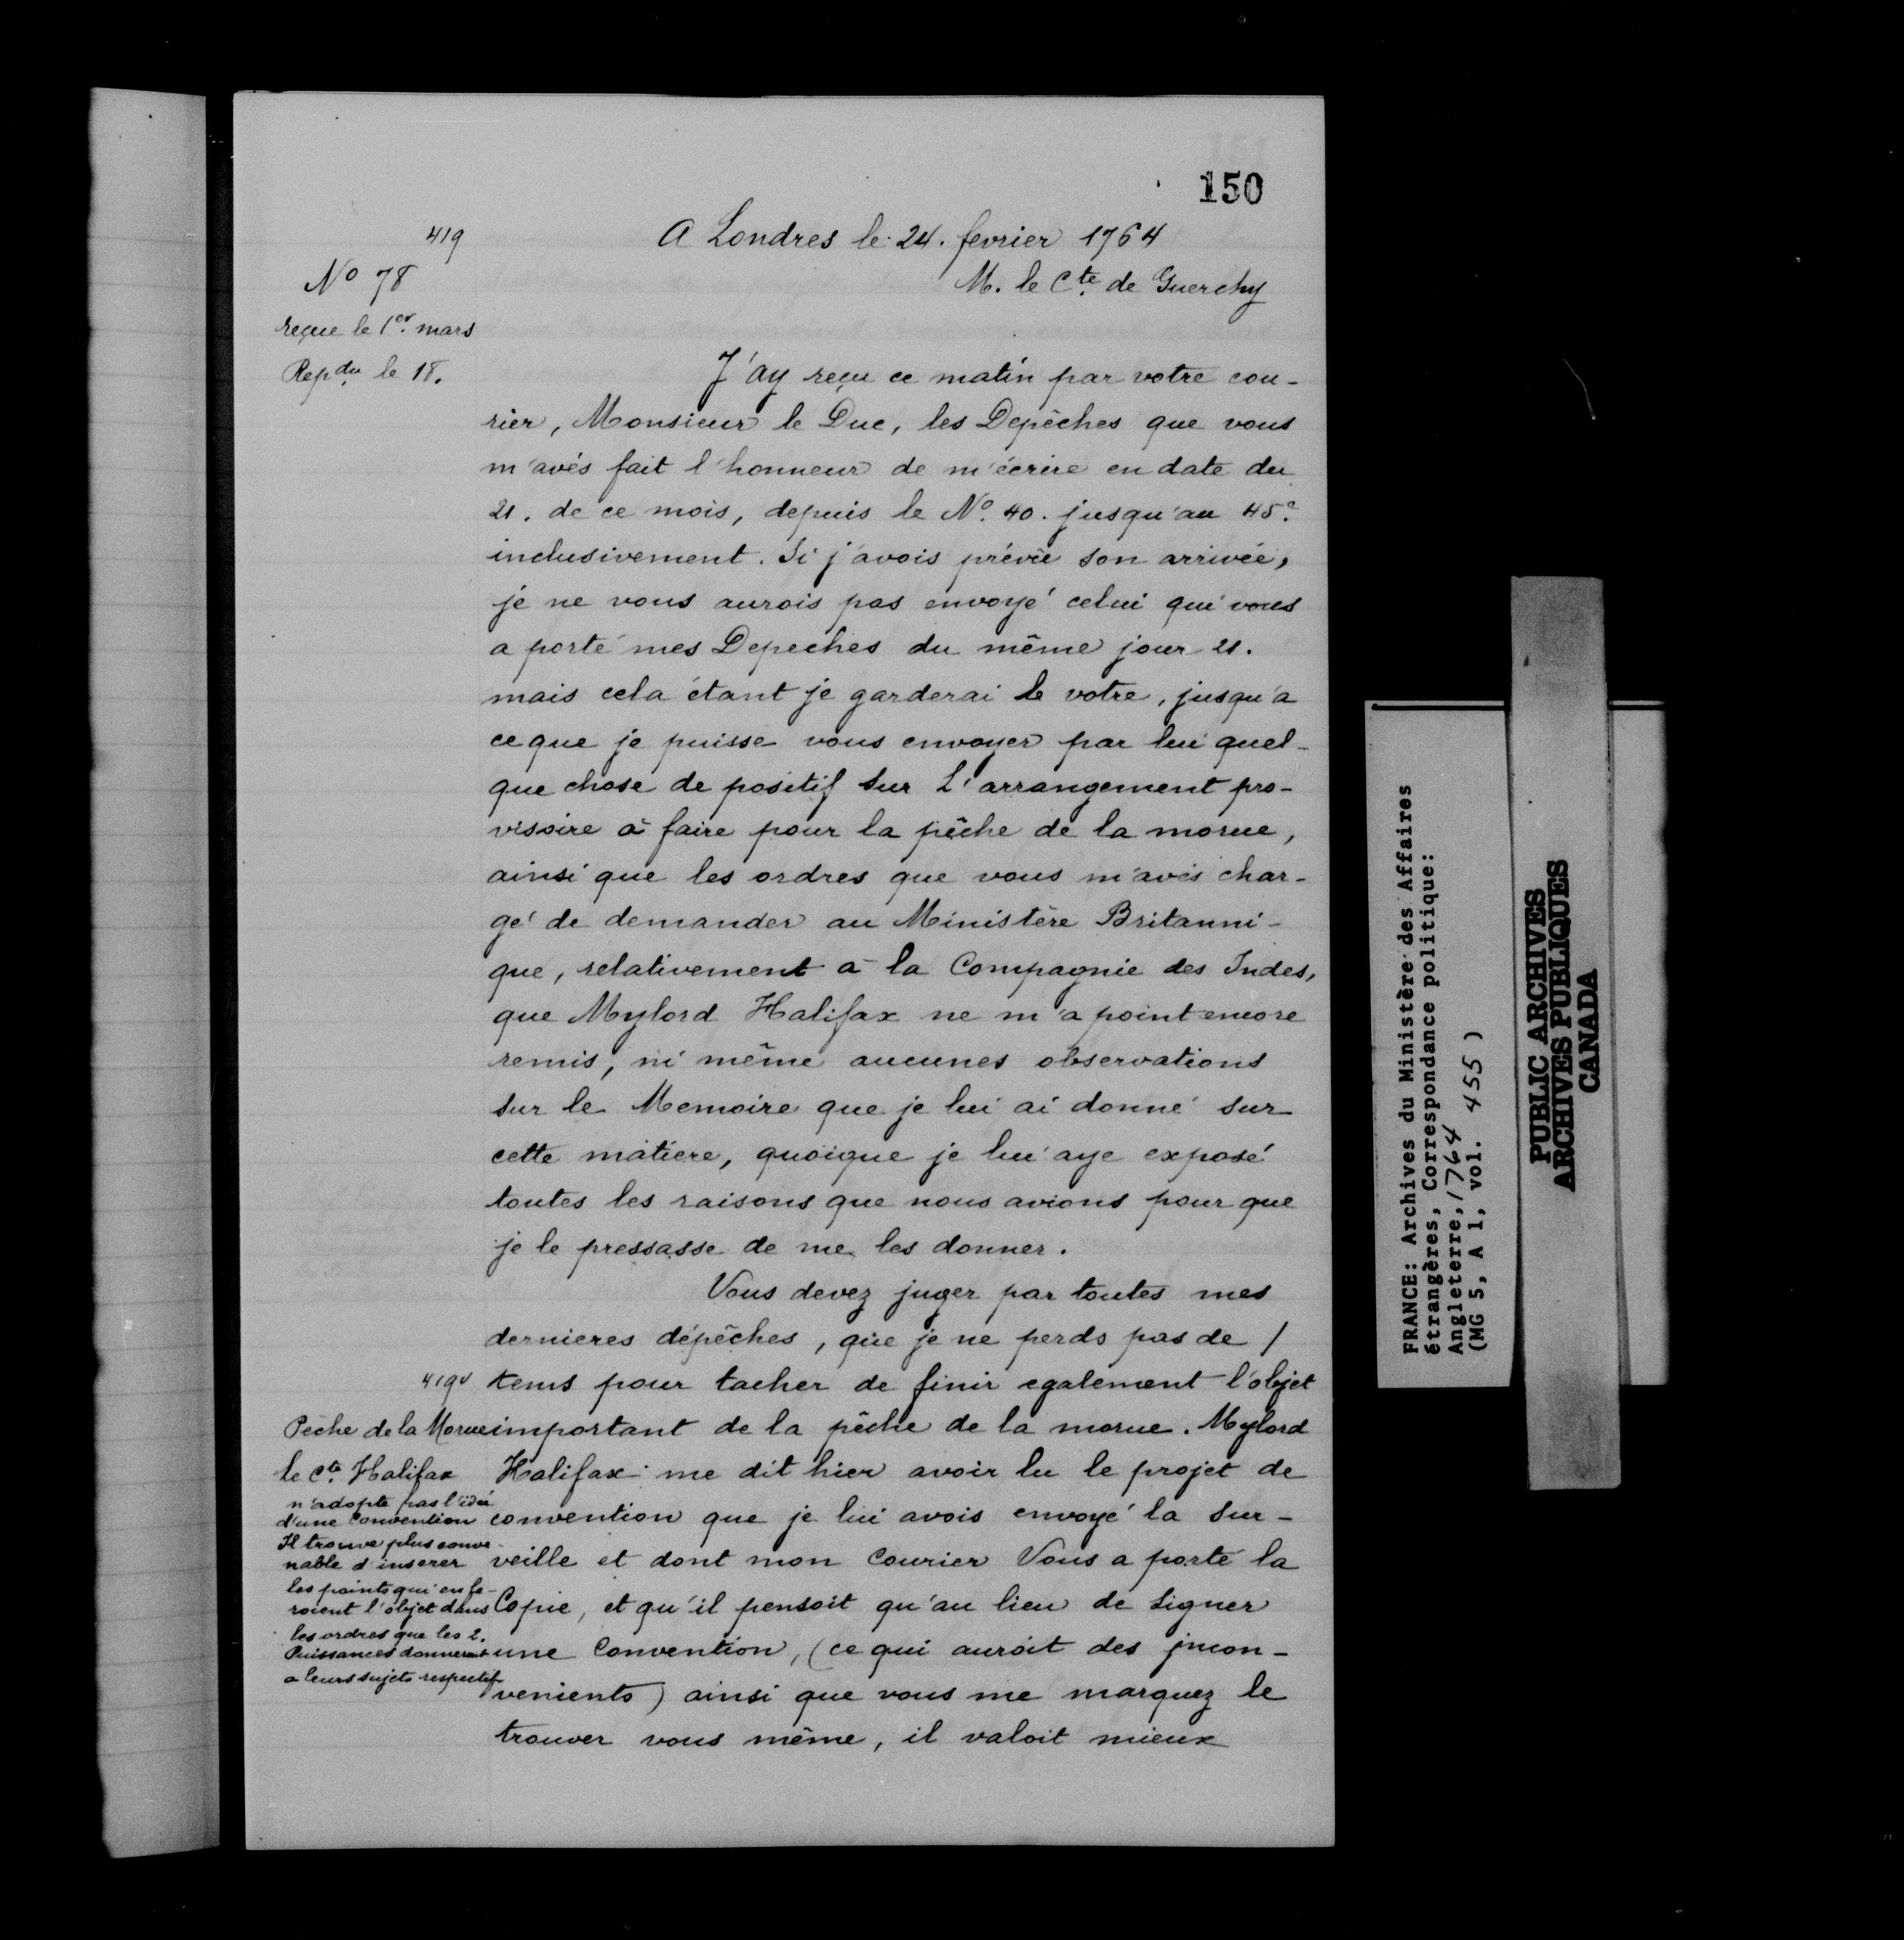 150
419
A Londres le 24. fevrier 1764
No 78
M. le Cte. de Guerchy
reçue le 1er. mars
Repdu. le 18.
J'ay reçu ce matin par votre cou-
rier, Monsieur le Duc, les Depêches que vous
m'avés fait l'honneur de m'écrire en date du
21. de ce mois, depuis le No. 40. jusqu'au 45e.
inclusivement. Si j'avois prévu son arrivée,
je ne vous aurois pas envoyé celui qui vous
a porté mes Depeches du même jour 21.
mais cela étant je garderai le votre, jusqu'a
ce que je puisse vous envoyer par lui quel-
que chose de positif sur L'arrangement pro-
visoire à faire pour la pêche de la morue,
ainsi que les ordres que vous m'avés char-
gé de demander au Ministère Britanni-
que, relativement a la Compagnie des Indes,
que Mylord Halifax ne m'a point encore
remis, ni même aucunes observations
sur le Memoire que je lui ai donné sur
cette matiere, quoique je lui aye exposé
toutes les raisons que nous avions pour que
je le pressasse de me les donner.
Vous devez juger par toutes mes
dernieres dépêches, que je ne perds pas de /
419v tems pour tacher de finir egalement l'objet
important de la pêche de la morue. Mylord
Halifax me dit hier avoir lu le projet de
convention que je lui avois envoyé la sur-
veille et dont mon Courier Vous a porté la
Copie, et qu'il pensoit qu'au lieu de signer
une Convention, (ce qui auroit des jncon-
venients) ainsi que vous me marquez le
trouver vous même, il valoit mieux
Pêche de la Morue
le Cte. Halifax
n'adopte pas l'idée
d'une Convention
Il trouve plus conve-
nable d'inserer
les points qui en fe-
roient l'objet dans
les ordres que les 2.
Puissances donneroient
a leurs sujets respectif
FRANCE: Archives du Ministère des Affaires
étrangères, Correspondance politique:
Angleterre, 1764
(MG 5, A 1, vol. 455 )
PUBLIC ARCHIVES
ARCHIVES PUBLIQUES
CANADA